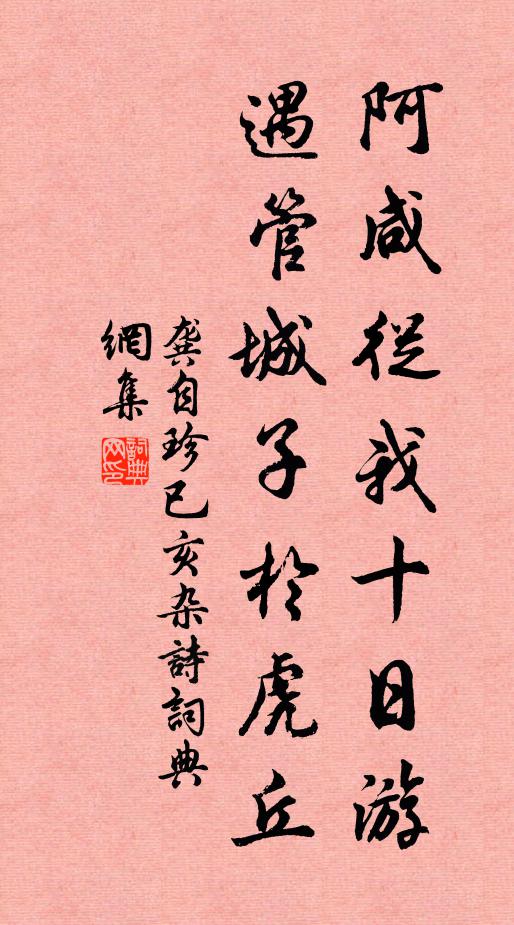 阿咸從我十日游
遇管城子於虎丘
龔自珍已亥杂詩詞典
網集
詞典
网印